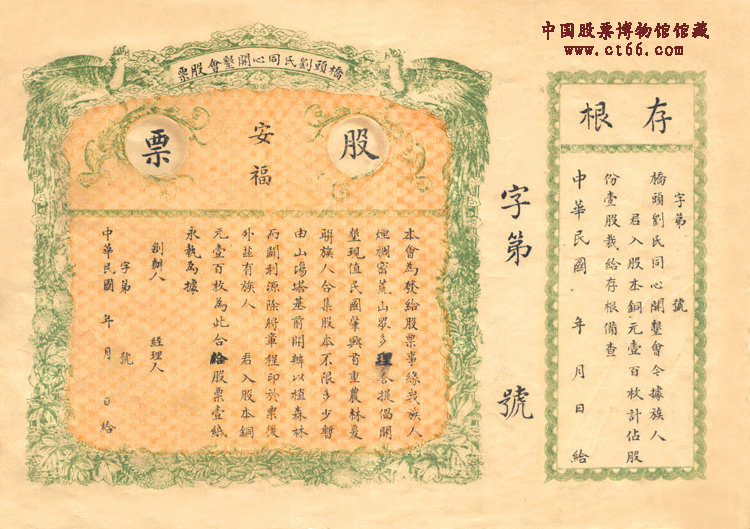 中国股票博物馆馆藏
www.ct66.com
橋頭劉氏同心開墾會股票
股 安福 票
本會為發給股票事緣我族人
煙稠密荒山眾多理合提倡開
墾現值民國肇興首重農林爰
聯族人合集股本不限多少暫
由山塲塔基前開辦以植森林
而闢利源除將章程印於票後
外茲有族人 君入股本銅
元壹百枚為此合給股票壹紙
永執為據
創辦人 經理人
字第 號
中華民國 年 月 日給
字第 號
存根
字第 號
橋頭劉氏同心開墾會今據族人
君入股本銅元壹百枚計佔股
份壹股裁給存根備查
中華民國 年 月 日 給